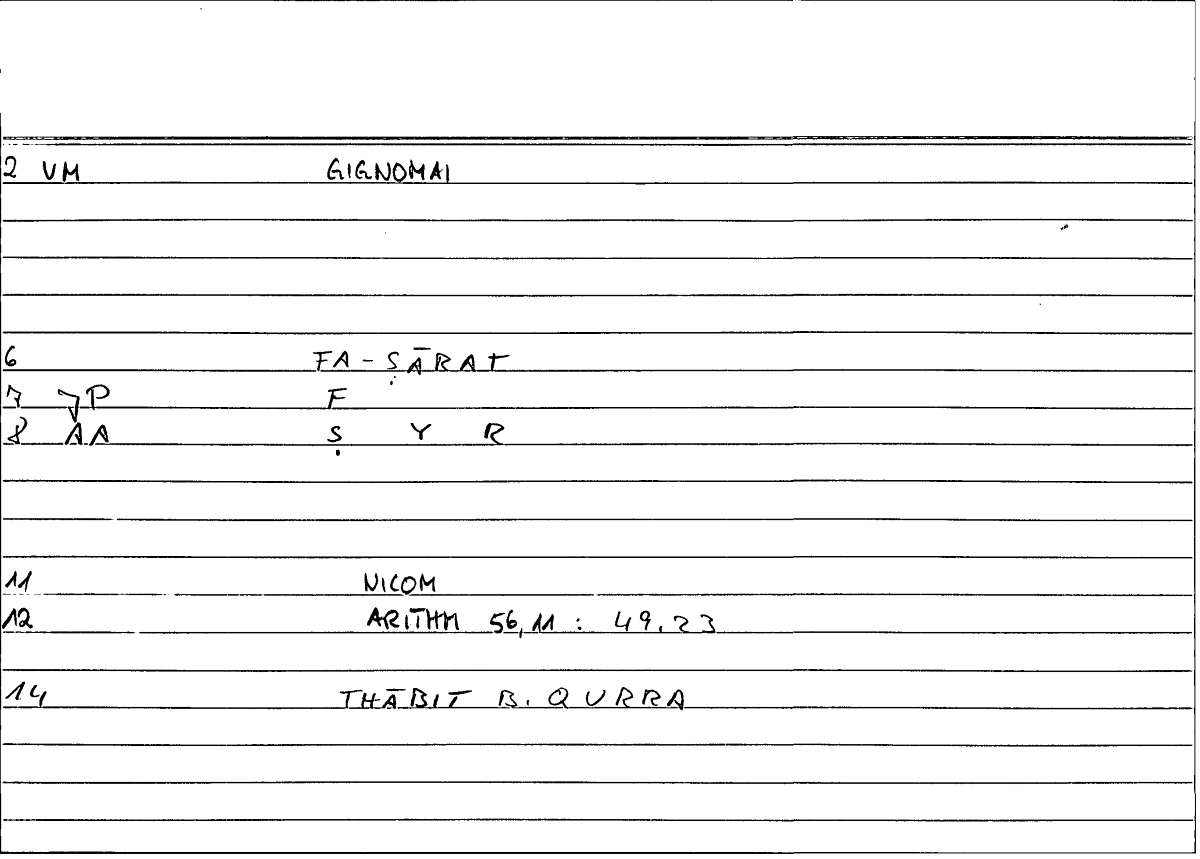 2 VM GIGNOMAI
6 FA-ṢĀRAT
7 ⁊P F
8 AA Ṣ Y R
11 NICOM
12 ARITHM 56,11 : 49.23
14 THĀBIT B. QURRA